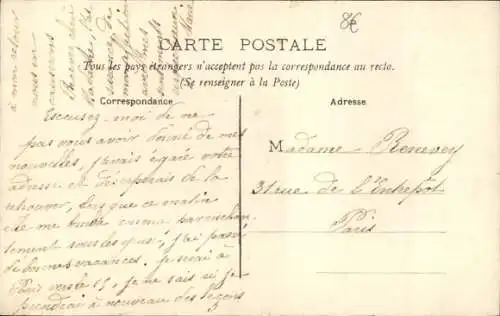 8€
CARTE POSTALE
Tous les pays étrangers n'acceptent pas la correspondance au recto.
(Se renseigner à la Poste)
Correspondance
Adresse
Excusez-moi de ne
pas vous avoir donné de mes
nouvelles, j'avais égaré votre
adresse et désespérais de la
retrouver, lorsque ce matin
elle me tombe
sous les yeux, j'ai passé
de bonnes vacances. Je serai à
Paris vers le 15, je ne sais si je
prendrai à nouveau des leçons
à mon retour
nous en
causerons
Recevez chère
Madame
avec mes
Madame Renevey
31 rue de l'Entrepôt
Paris